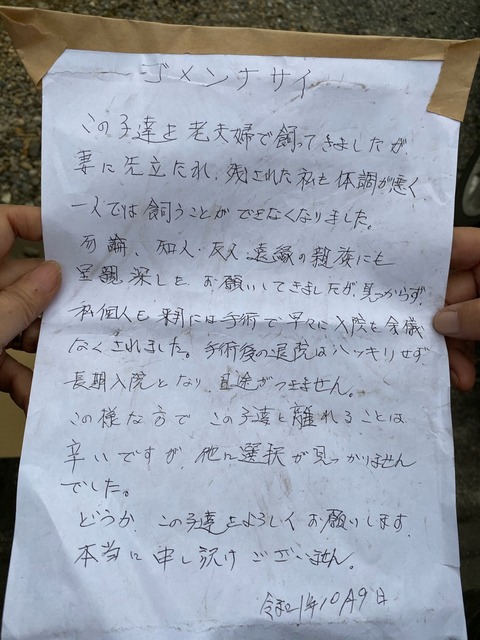 ゴメンナサイ
この子達を老夫婦で飼ってきましたが、
妻に先立たれ、残された私も体調が悪く
一人では飼うことができなくなりました。
勿論、知人・友人・遠縁の親族にも
里親探しをお願いしてきましたが、見つからず、
私個人も来月には手術で早々に入院を余儀
なくされました。手術後の退院はハッキリせず、
長期入院となり、目途がつきません。
この様な方でこの子達と離れることは
辛いですが、他に選択が見つかりません
でした。
どうか、この子達をよろしくお願いします。
本当に申し訳ございません。
令和1年10月9日